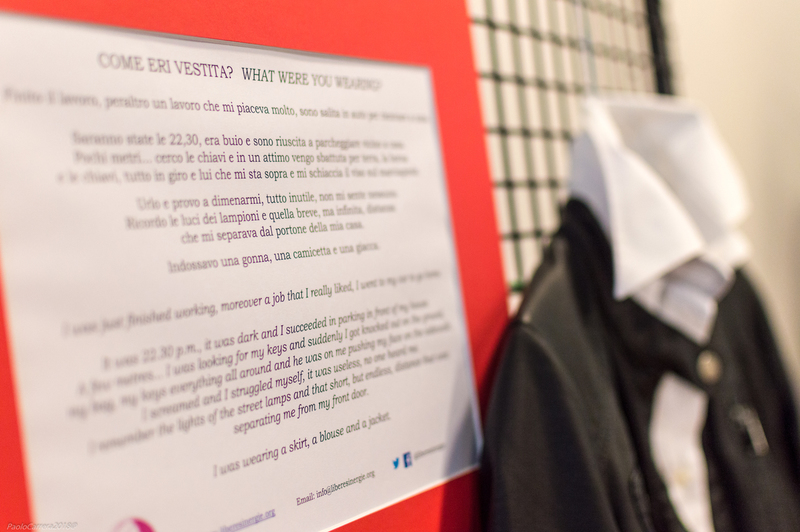 COME ERI VESTITA? WHAT WERE YOU WEARING?
Finito il lavoro, peraltro un lavoro che mi piaceva molto, sono salita in auto per
Saranno state le 22,30, era buio e sono riuscita a parcheggiare vicino a casa.
Pochi metri... cerco le chiavi e in un attimo vengo sbattuta per terra, la borsa
e le chiavi, tutto in giro e lui che mi sta sopra e mi schiaccia il viso sul marciapiede.
Urlo e provo a dimenarmi, tutto inutile, non mi sente nessuno.
Ricordo le luci dei lampioni e quella breve, ma infinita, distanza
che mi separava dal portone della mia casa.
Indossavo una gonna, una camicetta e una giacca.
I was just finished working, moreover a job that I really liked, I went to my car to go home.
It was 22.30 p.m., it was dark and I succeeded in parking in front of my house.
A few metres... I was looking for my keys and suddenly I got knocked out on the ground,
my bag, my keys everything all around and he was on me pushing my face on the sidewalk.
I screamed and I struggled myself, it was useless, no one heard me.
I remember the lights of the street lamps and that short, but endless, distance that was
separating me from my front door.
I was wearing a skirt, a blouse and a jacket.
liberesinergie.org
Email: info@liberesinergie.org